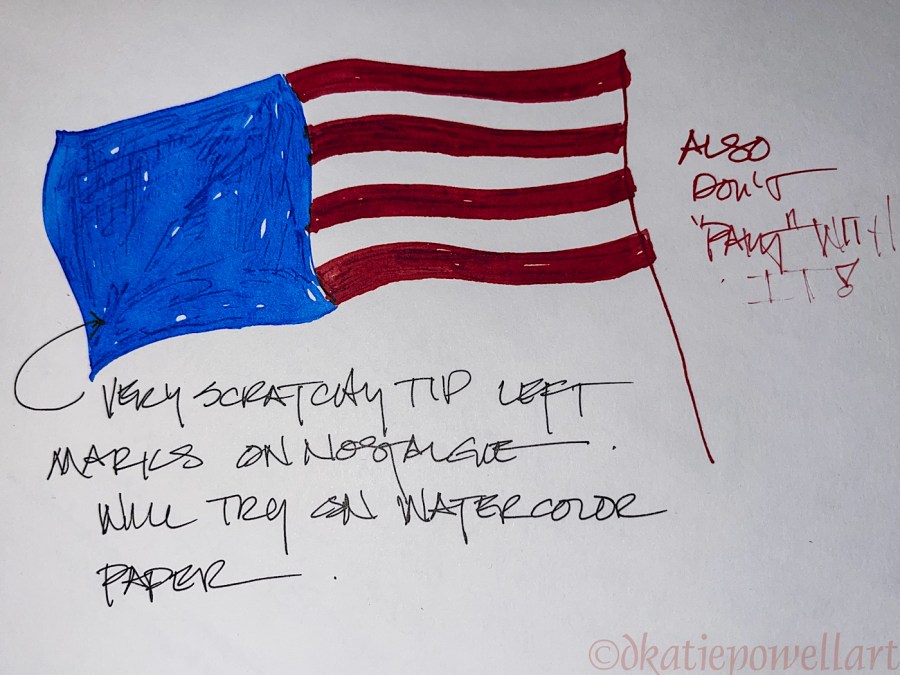 VERY SCRATCHY TIP LEFT
MARKS ON NOSTALGIE.
WILL TRY ON WATERCOLOR
PAPER.
ALSO
DON'T
"PAINT" WITH
IT
©dkatiepowellart